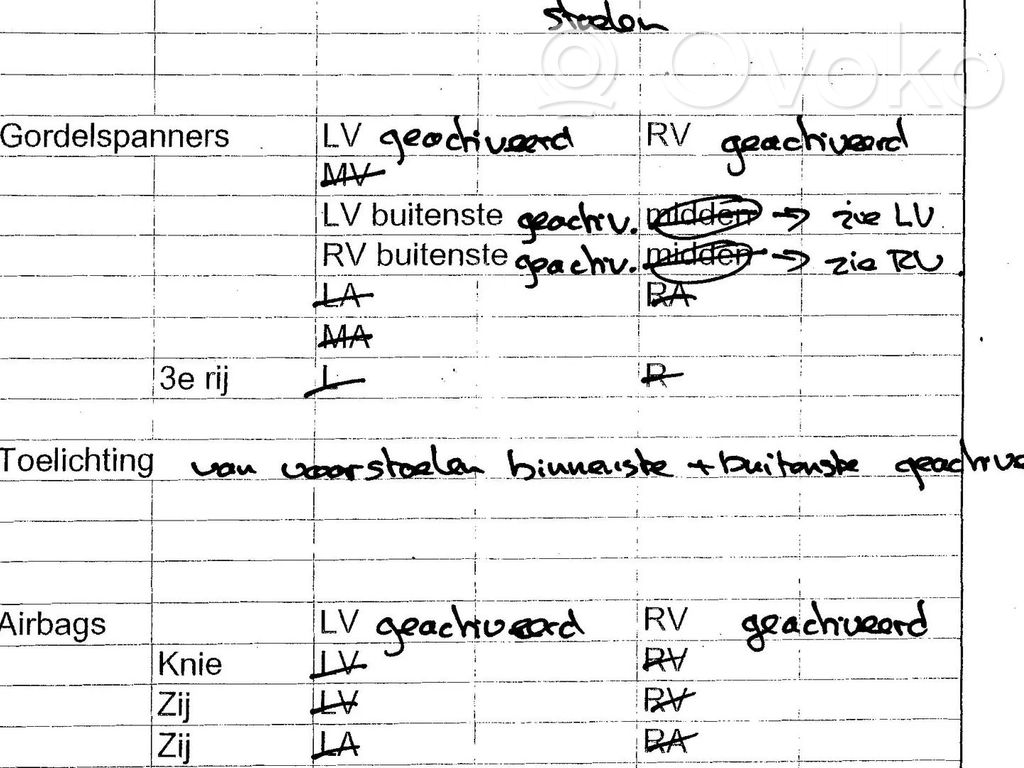 stoelen
Ovoko
Gordelspanners LV geachiveerd RV geachiveerd
MV
LV buitenste geachiv. midden → zie LV
RV buitenste geachiv. midden → zie RV.
LA RA
MA
3e rij L R
Toelichting van voorstoelen binnenste + buitenste geachive
Airbags LV geachiveerd RV geachiveerd
Knie LV RV
Zij LV RV
Zij LA RA